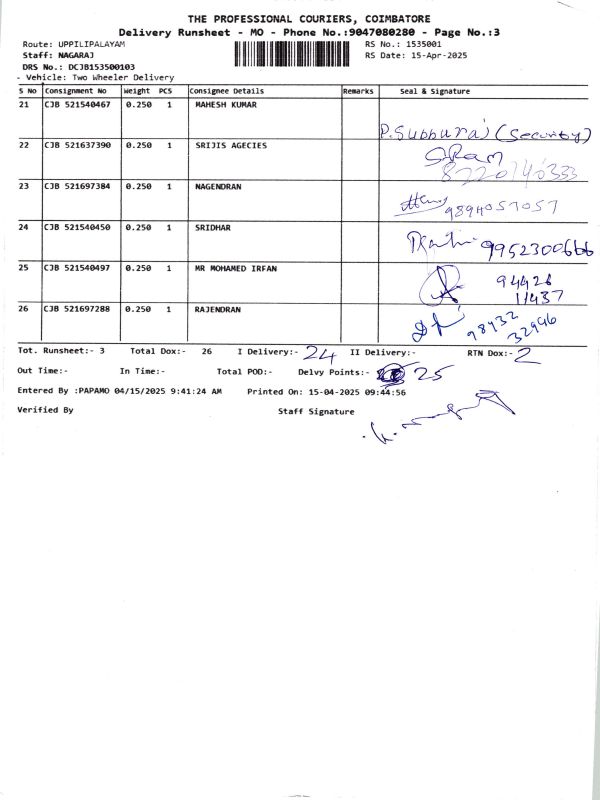 THE PROFESSIONAL COURIERS, COIMBATORE
Delivery Runsheet - MO - Phone No.:9047080280 - Page No.:3
Route: UPPILIPALAYAM RS No.: 1535001
Staff: NAGARAJ RS Date: 15-Apr-2025
DRS No.: DCJB153500103
- Vehicle: Two Wheeler Delivery
S No Consignment No Weight PCS Consignee Details Remarks Seal & Signature
21 CJB 521540467 0.250 1 MAHESH KUMAR
P. Subburaj (Security)
22 CJB 521637390 0.250 1 SRIJIS AGECIES
8220140333
23 CJB 521697384 0.250 1 NAGENDRAN
9894057057
24 CJB 521540450 0.250 1 SRIDHAR
9952300666
25 CJB 521540497 0.250 1 MR MOHAMED IRFAN
94426
11437
26 CJB 521697288 0.250 1 RAJENDRAN
98432
32946
Tot. Runsheet:- 3 Total Dox:- 26 I Delivery:- 24 II Delivery:- RTN Dox:- 2
Out Time:- In Time:- Total POD:- Delvy Points:- 25
Entered By :PAPAMO 04/15/2025 9:41:24 AM Printed On: 15-04-2025 09:44:56
Verified By Staff Signature